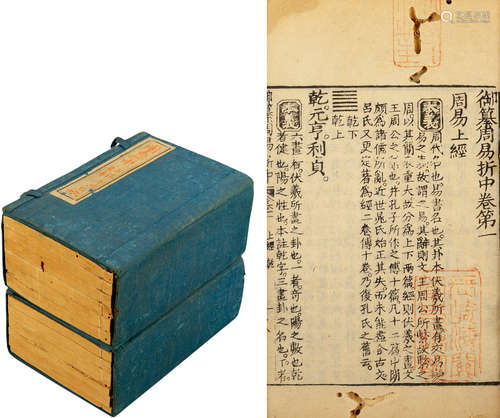 御纂周易折中卷第一
周易上經
周代名也易書名也其卦本伏羲所畫有交易變
易之義故謂之易其辭則文王周公所繫故繫之
周以其簡袠重大故分為上下兩篇經則伏羲之畫文
王周公之辭也并孔子所作之傳十篇凡十二篇中間
頗為諸儒所亂近世晁氏始正其失而未能盡合古文
呂氏又更定著為經二卷傳十卷乃復孔氏之舊云
乾下
乾上
乾元亨利貞
六畫者伏羲所畫之卦也一者奇也陽之數也乾
者健也陽之性也本註乾字三畫卦之名也下者